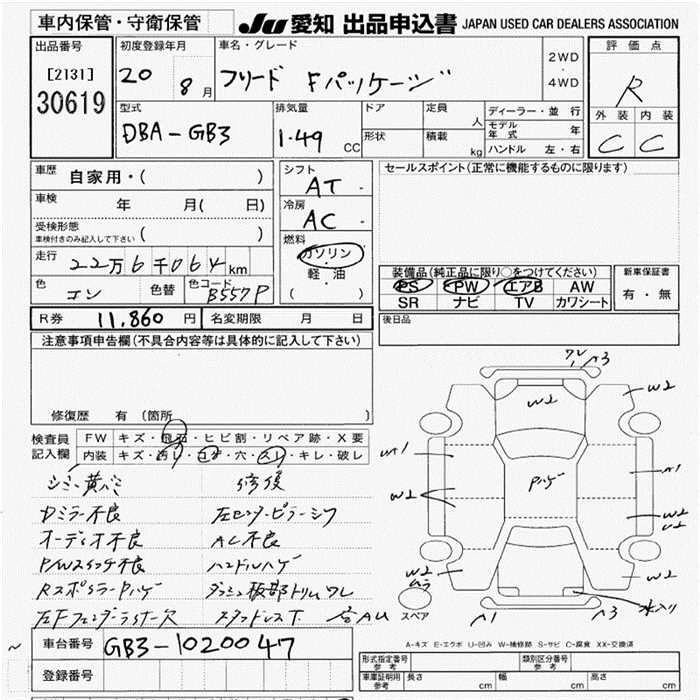 車内保管・守衛保管
JU 愛知 出品申込書 JAPAN USED CAR DEALERS ASSOCIATION
出品番号
[2131]
30619
初度登録年月
20 8月
車名・グレード
フリード Fパッケージ
2WD・4WD
評価点
R
外装 内装
C C
型式
DBA-GB3
排気量
1.49 CC
ドア
形状
定員 人
積載 kg
ディーラー・並行
モデル年式 年
ハンドル 左・右
車歴
自家用・( )
車検 年 月( 日)
受検形態
車検付きのみ記入して下さい ( )
走行 22万6千064km
色 コン 色替 色コード B557P
シフト
AT
冷房
AC
燃料
ガソリン・軽・油
( )
セールスポイント(正常に機能するものに限ります)
装備品(純正品に限り○をつけてください)
PS PW エアB AW
SR ナビ TV カワシート
新車保証書
有・無
R券 11,860 円 名変期限 月 日
後日品
注意事項申告欄(不具合内容等は具体的に記入して下さい)
修復歴 有 (箇所 )
検査員記入欄
FW キズ・飛石・ヒビ割・リペア跡・X要
内装 キズ・汚レ・コゲ・穴・スレ・キレ・破レ
シミ 黄バミ 修復
Dミラー不良 左センターピラーシワ
オーディオ不良 AC不良
P/Wスイッチ不良 ハンドルハゲ
Rスポイラーハゲ ダッシュ板部トリムワレ
左Fフェンダーライナー欠 スタッドレスT
ワレ
A3
W2
W2
A1
W2
ハゲ
A1
W2
U2
W2
ムラ
W2
水入り
A1
A3
スペア
A-キズ E-エクボ U-凹み W-補修跡 S-サビ C-腐食 XX-交換済
車台番号 GB3-1020047
登録番号
形式指定番号 参考
類別区分番号 参考
車庫証明用 参考 長さ cm 幅 cm 高さ cm